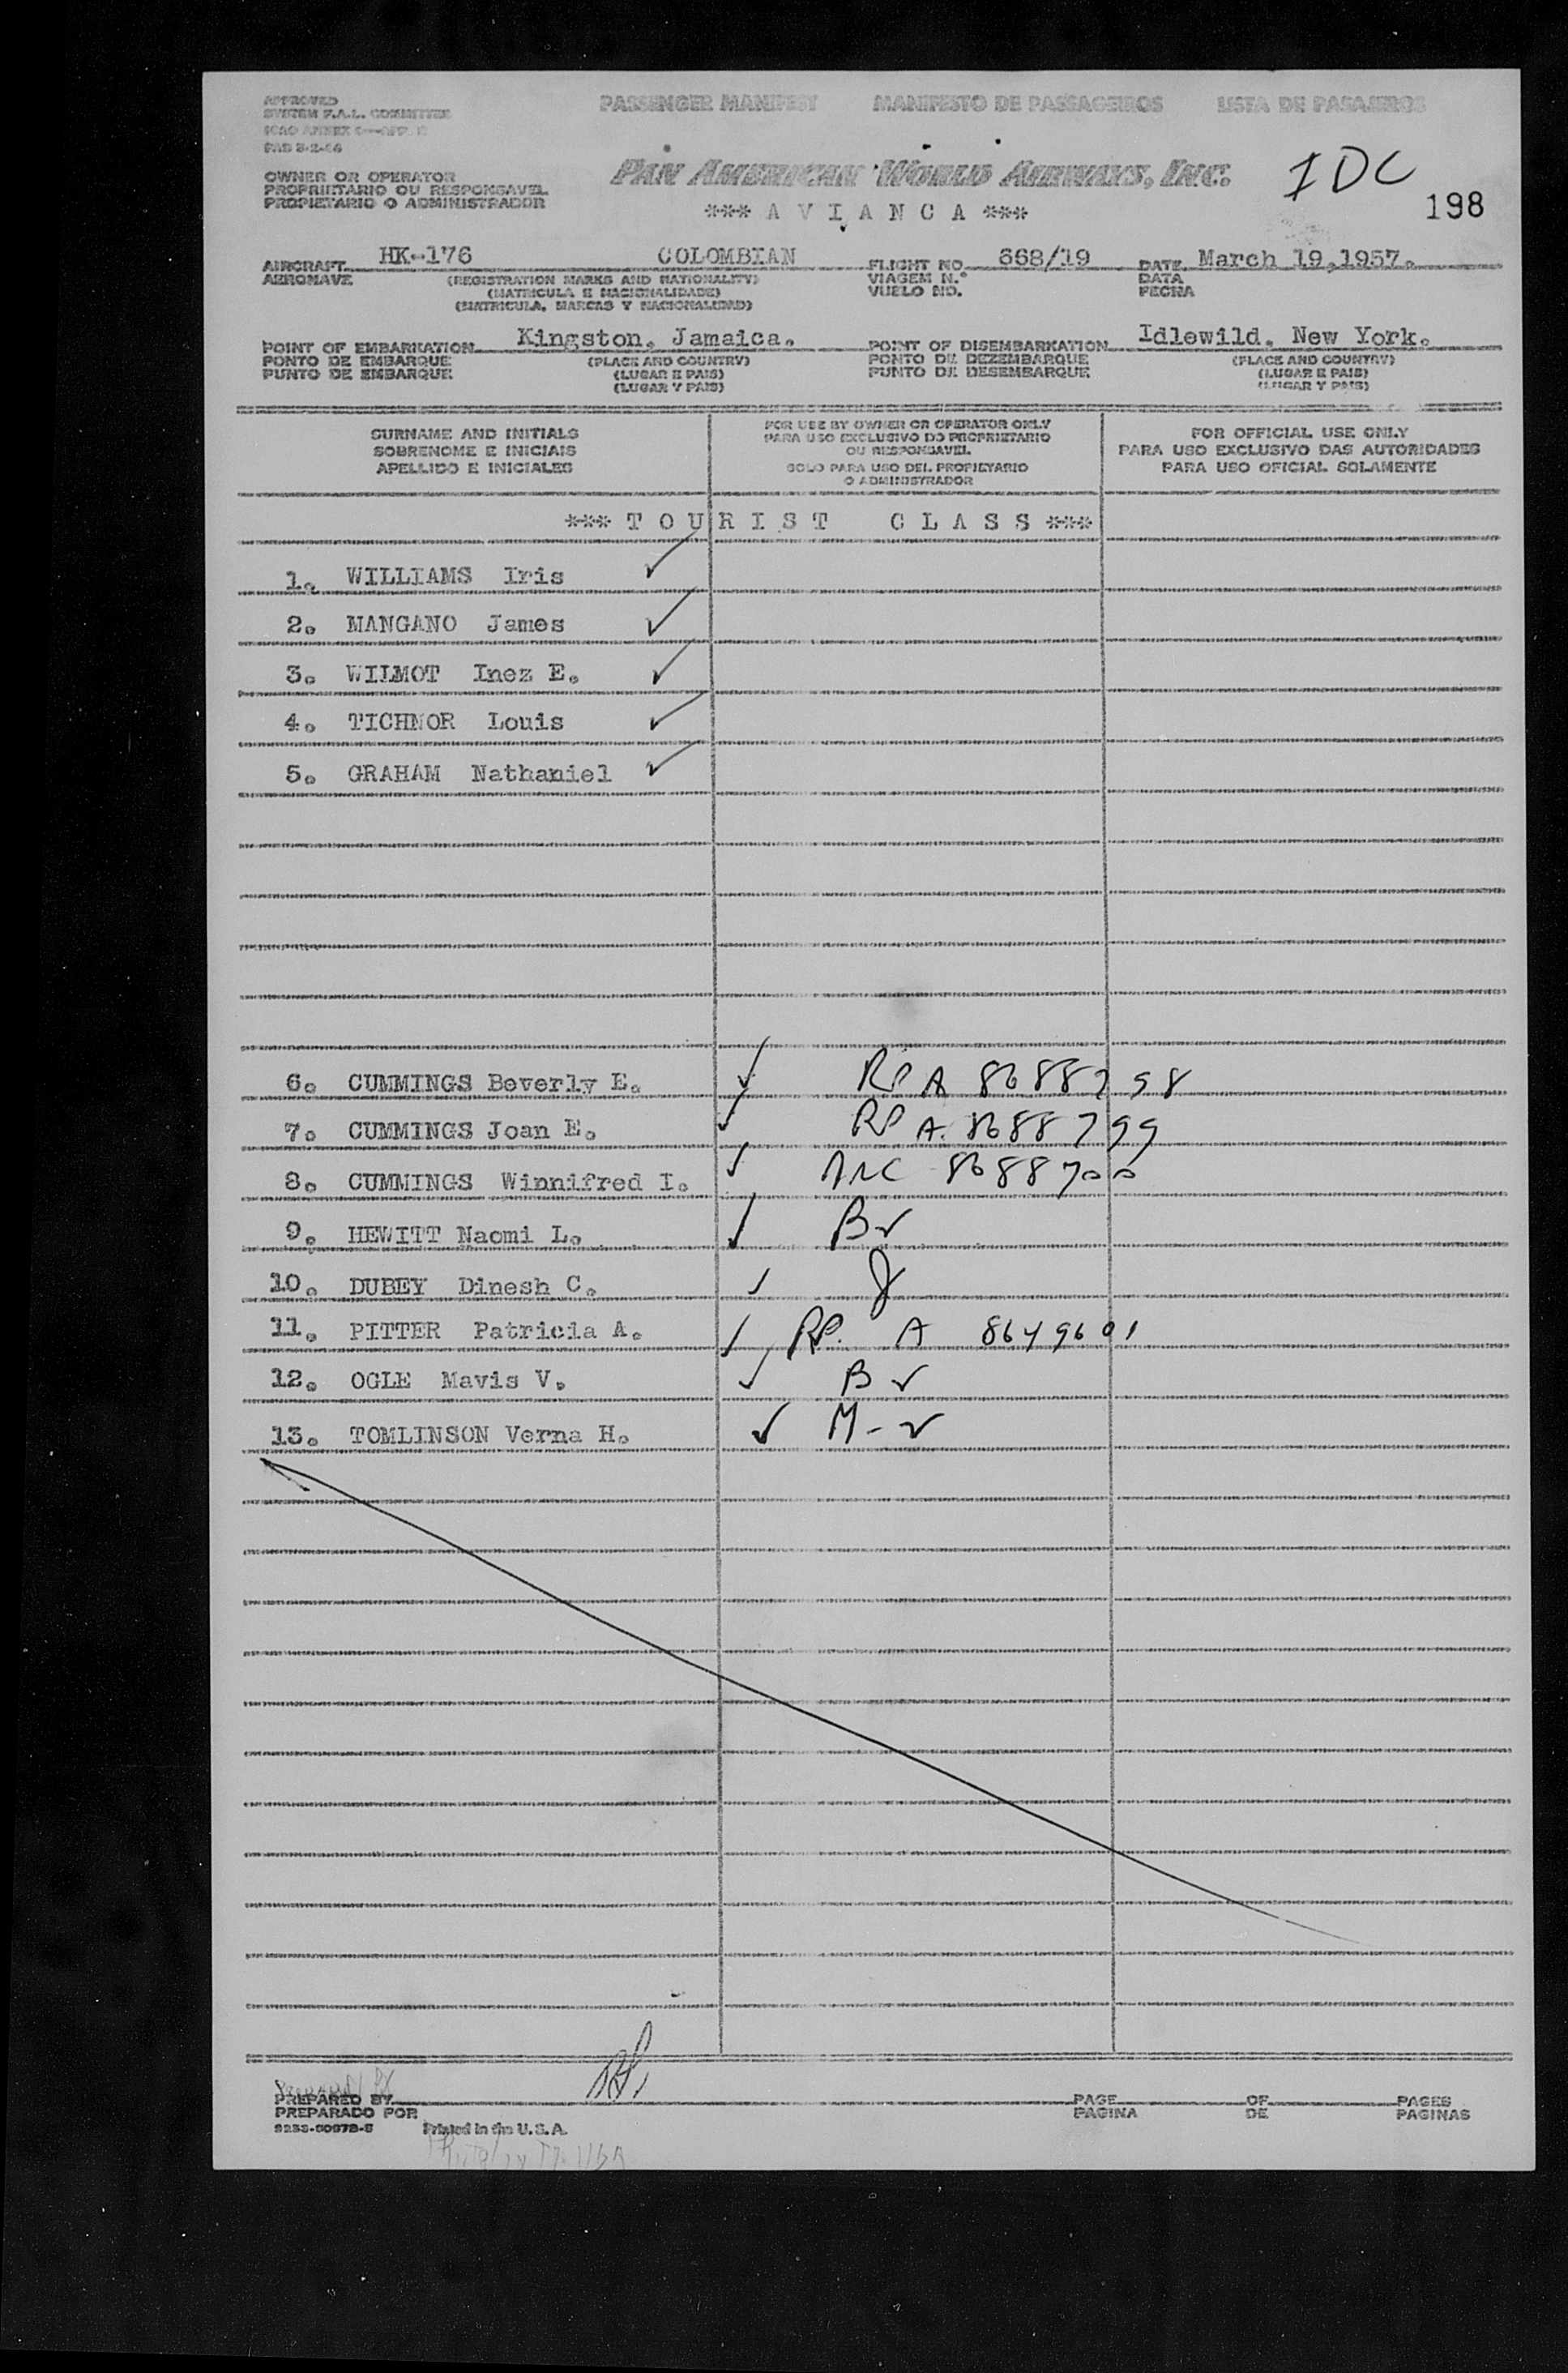 APPROVED
SYSTEM F.A.L. COMMITTEE
ICAO ANNEX 9—APP.
PASSENGER MANIFEST MANIFESTO DE PASSAGEIROS LISTA DE PASAJEROS
OWNER OR OPERATOR
PROPRIETARIO OU RESPONSAVEL
PROPIETARIO O ADMINISTRADOR
PAN AMERICAN WORLD AIRWAYS, INC.
IDC
198
*** A V I A N C A ***
AIRCRAFT HK-176 COLOMBIAN FLIGHT NO. 668/19 DATE March 19,1957.
AERONAVE (REGISTRATION MARKS AND NATIONALITY) VIAGEM N.º DATA
(MATRICULA E NACIONALIDADE) VUELO NO. FECHA
(MATRICULA, MARCAS Y NACIONALIDAD)
POINT OF EMBARKATION Kingston. Jamaica. POINT OF DISEMBARKATION Idlewild. New York.
PONTO DE EMBARQUE (PLACE AND COUNTRY) PONTO DE DEZEMBARQUE (PLACE AND COUNTRY)
PUNTO DE EMBARQUE (LUGAR E PAIS) PUNTO DE DESEMBARQUE (LUGAR E PAIS)
(LUGAR Y PAIS) (LUGAR Y PAIS)
SURNAME AND INITIALS
SOBRENOME E INICIAIS
APELLIDO E INICIALES
FOR USE BY OWNER OR OPERATOR ONLY
PARA USO EXCLUSIVO DO PROPRIETARIO
OU RESPONSAVEL
SOLO PARA USO DEL PROPIETARIO
O ADMINISTRADOR
FOR OFFICIAL USE ONLY
PARA USO EXCLUSIVO DAS AUTORIDADES
PARA USO OFICIAL SOLAMENTE
*** T O U R I S T C L A S S ***
1. WILLIAMS Iris ✓
2. MANGANO James ✓
3. WILMOT Inez E. ✓
4. TICHNOR Louis ✓
5. GRAHAM Nathaniel ✓
6. CUMMINGS Beverly E. ✓ RP A 8688798
7. CUMMINGS Joan E. ✓ RP A. 8688799
8. CUMMINGS Winnifred I. ✓ 8688700
9. HEWITT Naomi L. ✓ B ✓
10. DUBEY Dinesh C. ✓
11. PITTER Patricia A. ✓ RP. A 8649601
12. OGLE Mavis V. ✓ B ✓
13. TOMLINSON Verna H. ✓ M - ✓
PREPARED BY PAGE OF PAGES
PREPARADO POR PAGINA DE PAGINAS
Printed in the U. S. A.